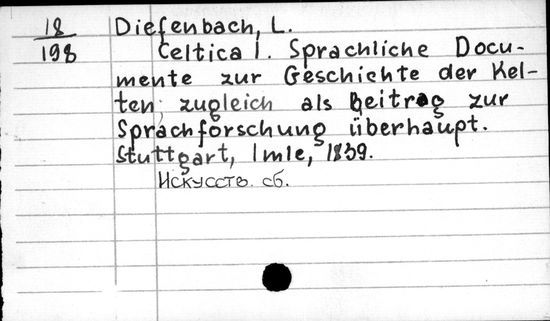 18 Diefenbach, L.
198 Celtica I. Sprachliche Docu-
mente zur Geschichte der Kel-
ten; zugleich als Beitrag zur
Sprachforschung überhaupt.
Stuttgart, Imle, 1839.
Искусств. сб.